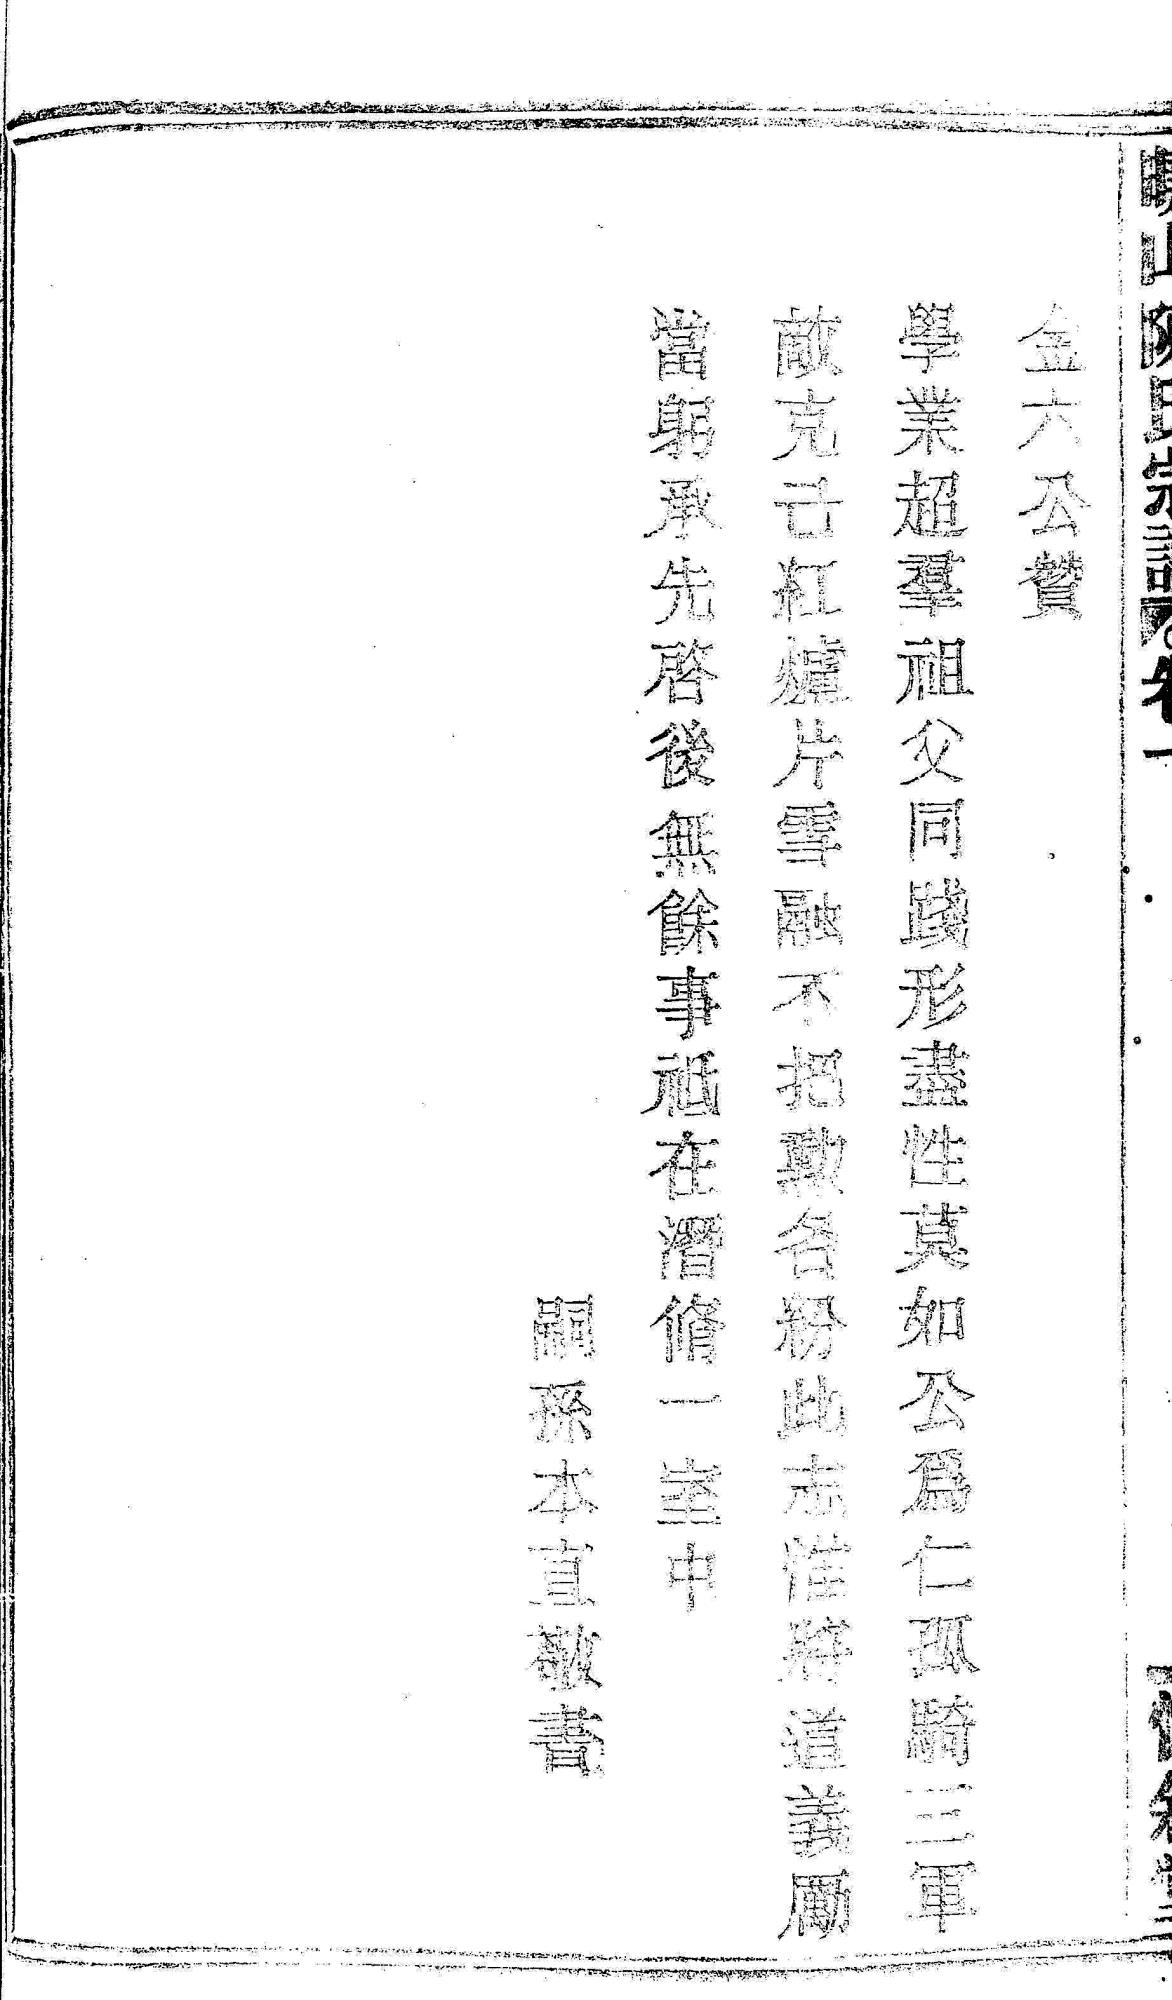 山陳氏宗譜 卷一
金六公贊
學業超羣祖父同踐形盡性莫如公爲仁孤騎三軍
敵克己紅爐片雪融不把勳名粉此志惟將道義勵
當躬承先啓後無餘事祗在潛修一室中
嗣孫本直敬書